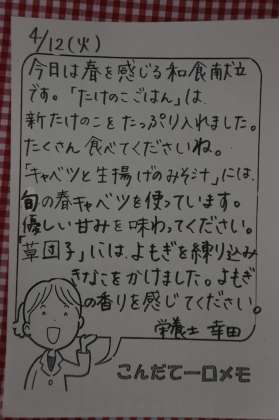 4/12(火)
今日は春を感じる和食献立
です。「たけのこごはん」は、
新たけのこをたっぷり入れました。
たくさん食べてくださいね。
「キャベツと生揚げのみそ汁」には、
旬の春キャベツを使っています。
優しい甘みを味わってください。
「草団子」には、よもぎを練り込み
きなこをかけました。よもぎ
の香りを感じてください。
栄養士 幸田
こんだて一口メモ